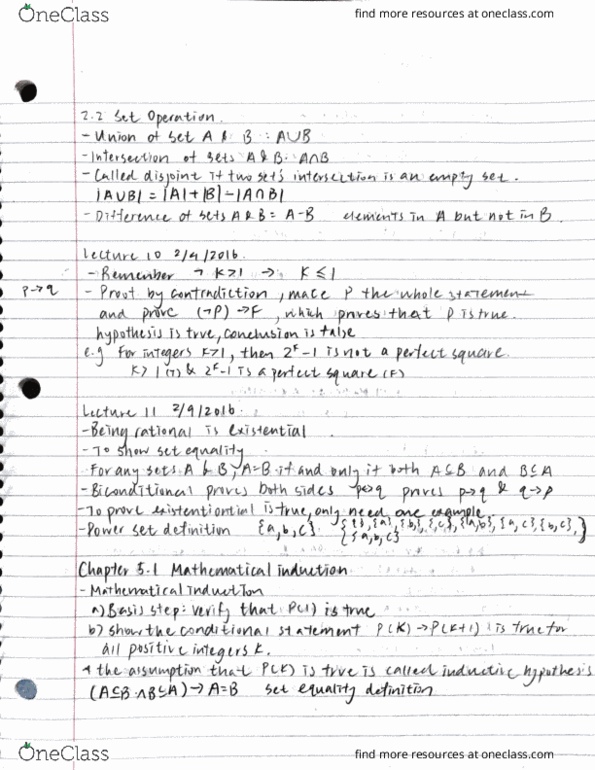 OneClass
find more resources at oneclass.com
2.2 Set Operation.
- Union of set A & B : A∪B
- Intersection of sets A & B : A∩B
- Called disjoint if two set's intersection is an empty set.
|A∪B| = |A|+|B|-|A∩B|
- Difference of sets A & B = A-B elements in A but not in B.
Lecture 10 2/4/2016.
- Remember ¬ K>1 → K ≤ 1
P→q - Proof by contradiction, make P the whole statement
and prove (¬P)→F, which proves that P is true.
hypothesis is true, conclusion is false
e.g For integers K>1, then 2^K-1 is not a perfect square.
K>1 (T) & 2^K-1 is a perfect square (F)
Lecture 11 2/9/2016.
- Being rational is existential
- To show set equality
For any sets A & B, A=B if and only if both A⊆B and B⊆A
- Biconditional proves both sides p↔q proves p→q & q→p
- To prove existiontial is true, only need one example.
- Power set definition {a,b,c} {{}, {a}, {b}, {c}, {a,b}, {a,c}, {b,c},
{a,b,c}}
Chapter 5.1 Mathematical induction
- Mathematical induction
a) Basis step: verify that P(1) is true
b) show the conditional statement P(K)→P(K+1) is true for
all positive integers K.
* the assumption that P(K) is true is called inductive hypothesis
(A⊆B ∧ B⊆A)→A=B set equality definition
OneClass
find more resources at oneclass.com